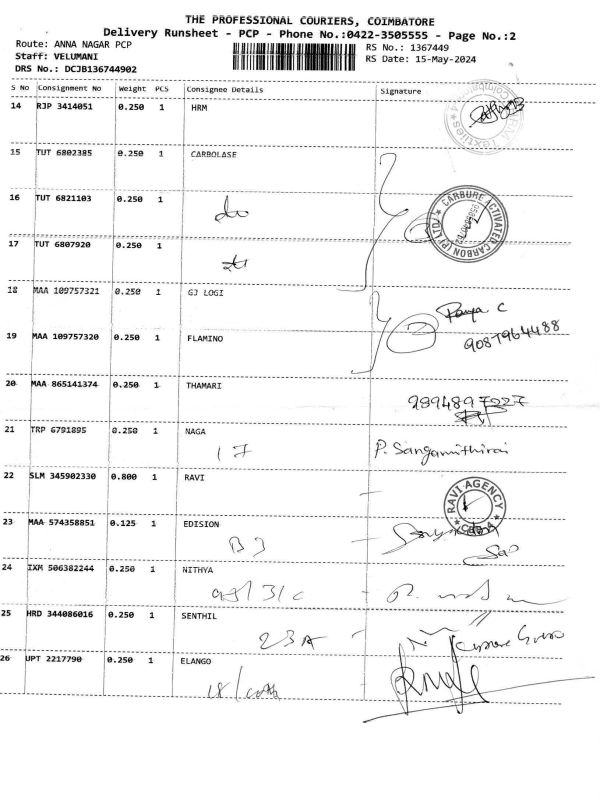 THE PROFESSIONAL COURIERS, COIMBATORE
Delivery Runsheet - PCP - Phone No.:0422-3505555 - Page No.:2
Route: ANNA NAGAR PCP RS No.: 1367449
Staff: VELUMANI RS Date: 15-May-2024
DRS No.: DCJB136744902
S No Consignment No Weight PCS Consignee Details Signature
14 RJP 3414051 0.250 1 HRM
15 TUT 6802385 0.250 1 CARBOLASE
16 TUT 6821103 0.250 1
do
CARBURE ACTIVATED CARBON (P) LTD
17 TUT 6807920 0.250 1
18 MAA 109757321 0.250 1 GJ LOGI
Ramya C
19 MAA 109757320 0.250 1 FLAMINO
9087964488
20 MAA 865141374 0.250 1 THAMARI
9894897227
21 TRP 6791895 0.250 1 NAGA
17 P. Sangamithirai
22 SLM 345902330 0.800 1 RAVI
RAVI AGENCY
23 MAA 574358851 0.125 1 EDISION
24 IXM 506382244 0.250 1 NITHYA
25 HRD 344086016 0.250 1 SENTHIL
23A
26 UPT 2217790 0.250 1 ELANGO